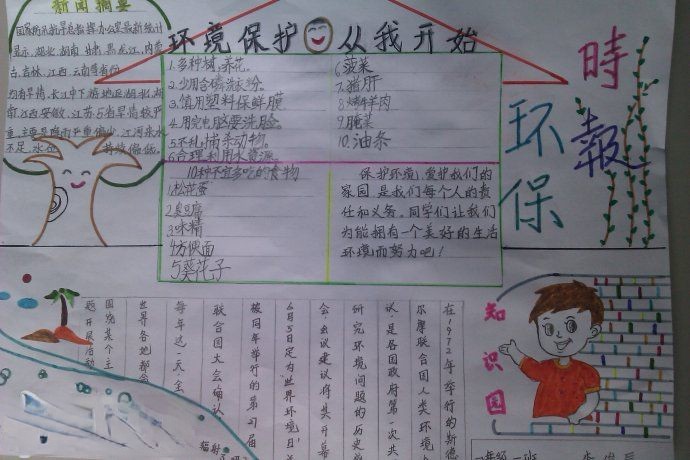 新闻摘要
国家防汛抗旱总指挥办公室最新统计
显示，湖北、湖南、吉林、黑龙江、内蒙
古、吉林、江西、云南等省份
均有旱情，长江中下游地区湖北、湖
南、江西、安徽、江苏、5省旱情较严
重，主要是降雨严重偏少，江河来水
不足，水位
持续偏低。
环境保护 从我开始
1.多种植、养花。
2.少用含磷洗衣粉。
3.慎用塑料保鲜膜
4.用完电脑要洗脸。
5.不乱捕杀动物。
6.合理利用水资源。
10种不宜多吃的食物
1松花蛋
2臭豆腐
3味精
4方便面
5葵花子
6.菠菜
7.猪肝
8.烤牛羊肉
9.腌菜
10.油条
保护环境，爱护我们的
家园，是我们每个人的责
任和义务。同学们让我们
为能拥有一个美好的生活
环境而努力吧！
环保
時報
知识园
在1972年举行的斯德
尔摩联合国人类环境
议，是各国政府第一次共
研究环境问题的历史
会，会议建议将其开幕
6月5日定为"世界环境日"
被同年举行的第27届
联合国大会确认
每年这一天，全
世界各地都会
围绕某个主
题开展活动